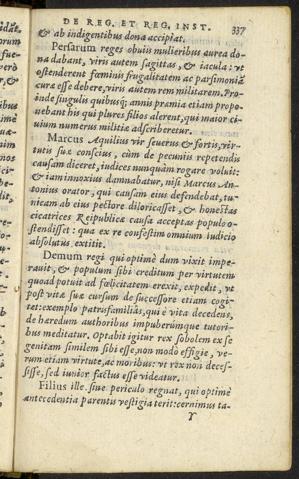 DE REG. ET REG. INST. 337
& ab indigentibus dona accipiat.
Persarum reges obuiis mulieribus aurea do-
na dabant, viris autem sagittas, & iacula: vt
ostenderent fœminis frugalitatem ac parsimoniã
curæ esse debere, viris autem rem militarem. Pro-
inde singulis quibusq; annis præmia etiam propo-
nebant his qui plures filios alerent, qui maior ci-
uium numerus militiæ adscriberetur.
Marcus Aquilius vir seuerus & fortis, vir-
tutis suæ conscius, cùm de pecuniis repetendis
causam diceret, iudices nunquàm rogare voluit:
& iam innoxius damnabatur, nisi Marcus An-
tonius orator, qui causam eius defendebat, tu-
nicam ab eius pectore diloricasset, & honestas
cicatrices Reipublicæ causa acceptas populo o-
stendisset: qua ex re confestim omnium iudicio
absolutus extitit.
Demum regi qui optimè dum vixit impe-
rauit, & populum sibi creditum per virtutem
quoad potuit ad fœlicitatem erexit, expedit, vt
post vitæ suæ cursum de successore etiam cogi-
tet: exemplo patrisfamiliâs, qui è vita decedens,
de hæredum authoribus impuberúmque tutori-
bus meditatur. Optabit igitur rex sobolem ex se
genitam similem sibi esse, non modò effigie, ve-
rùm etiam virtute, ac moribus: vt rex non deces-
sisse, sed iunior factus esse videatur.
Filius ille siue periculo regnat, qui optimè
antecedentia parentis vestigia terit: cernimus ta-
Y